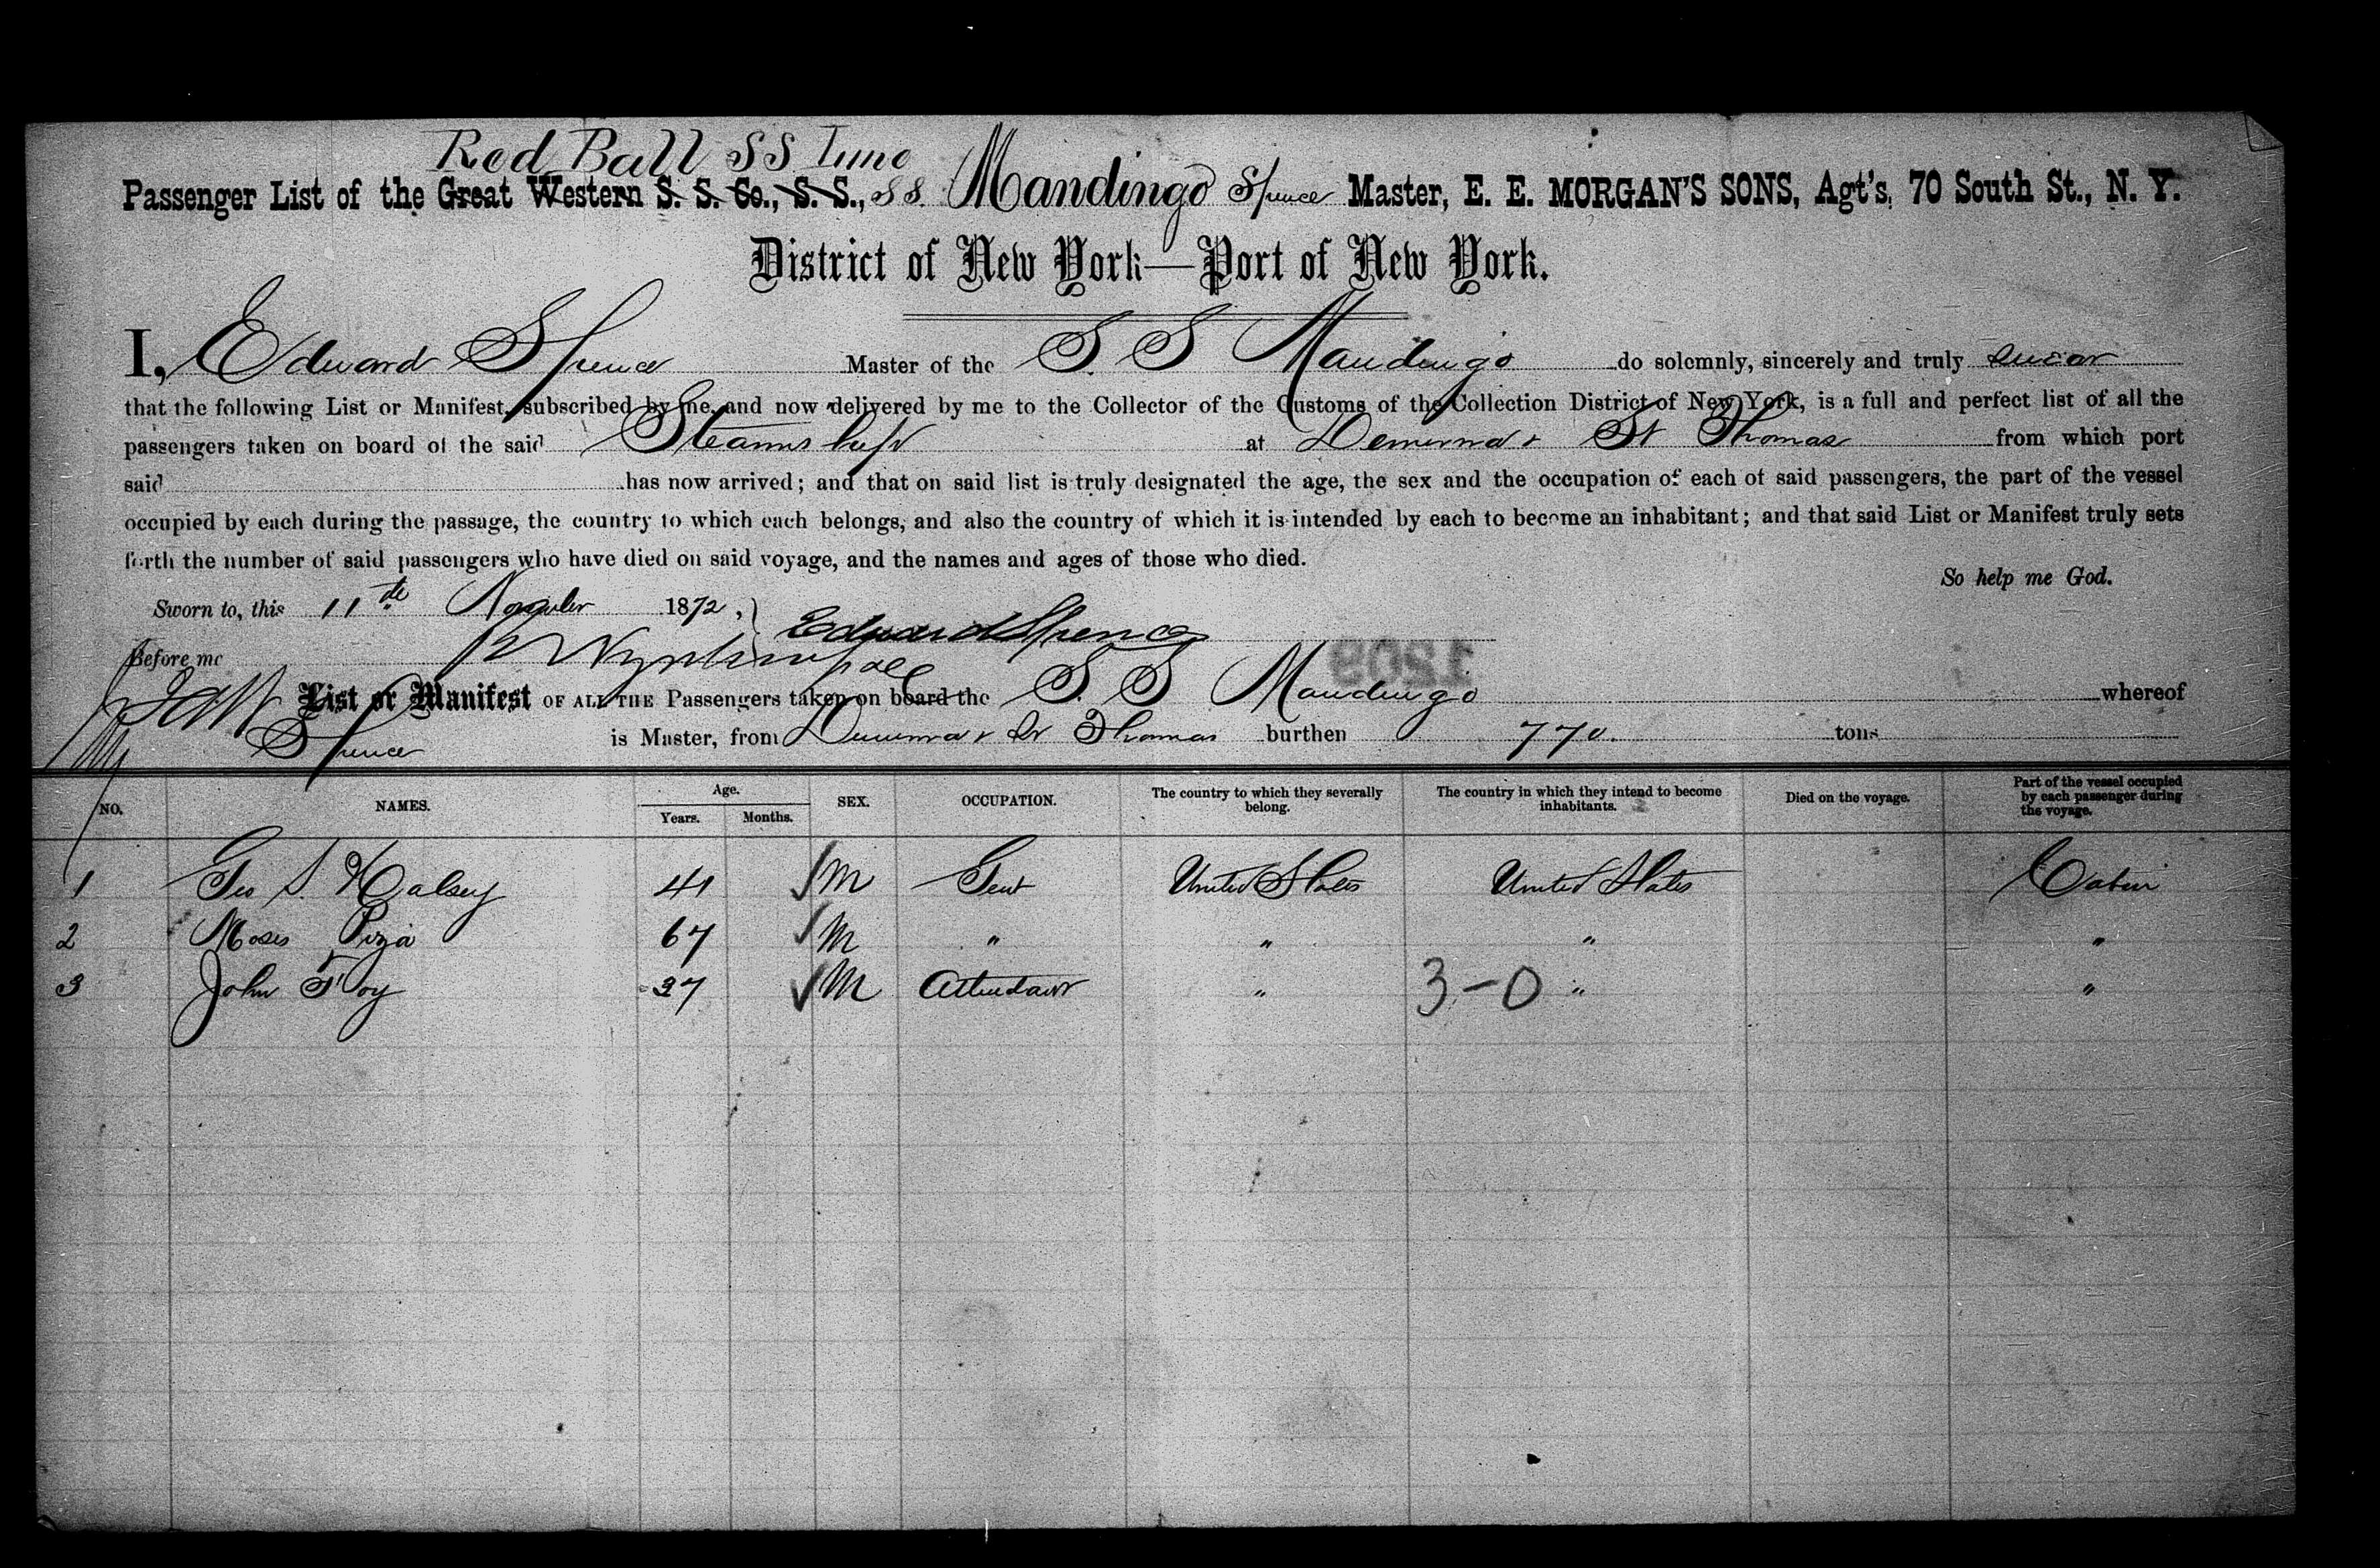 Red Ball S S Line
Passenger List of the Great Western S. S. Co., S. S., S S. Mandingo Spence Master, E. E. MORGAN'S SONS, Agt's, 70 South St., N. Y.
District of New York—Port of New York.
I, Edward Spence Master of the S. S Mandingo do solemnly, sincerely and truly swear
that the following List or Manifest, subscribed by me, and now delivered by me to the Collector of the Customs of the Collection District of New York, is a full and perfect list of all the
passengers taken on board of the said Steamship at Demerara & St Thomas from which port
said has now arrived; and that on said list is truly designated the age, the sex and the occupation of each of said passengers, the part of the vessel
occupied by each during the passage, the country to which each belongs, and also the country of which it is intended by each to become an inhabitant; and that said List or Manifest truly sets
forth the number of said passengers who have died on said voyage, and the names and ages of those who died.
So help me God.
Sworn to, this 11th November 1872, Edward Spence
Before me
1209
List or Manifest OF ALL THE Passengers taken on board the S. S Mandingo whereof
Spence is Master, from Demerara & St Thomas burthen 770. tons
NO. NAMES. Age. Years. Months. SEX. OCCUPATION. The country to which they severally belong. The country in which they intend to become inhabitants. Died on the voyage. Part of the vessel occupied by each passenger during the voyage.
1 Geo S. Halsey 41 M Gent United States United States Cabin
2 Moses Piza 67 M " " " "
3 John Foy 27 M Attendant " 3-0 " "